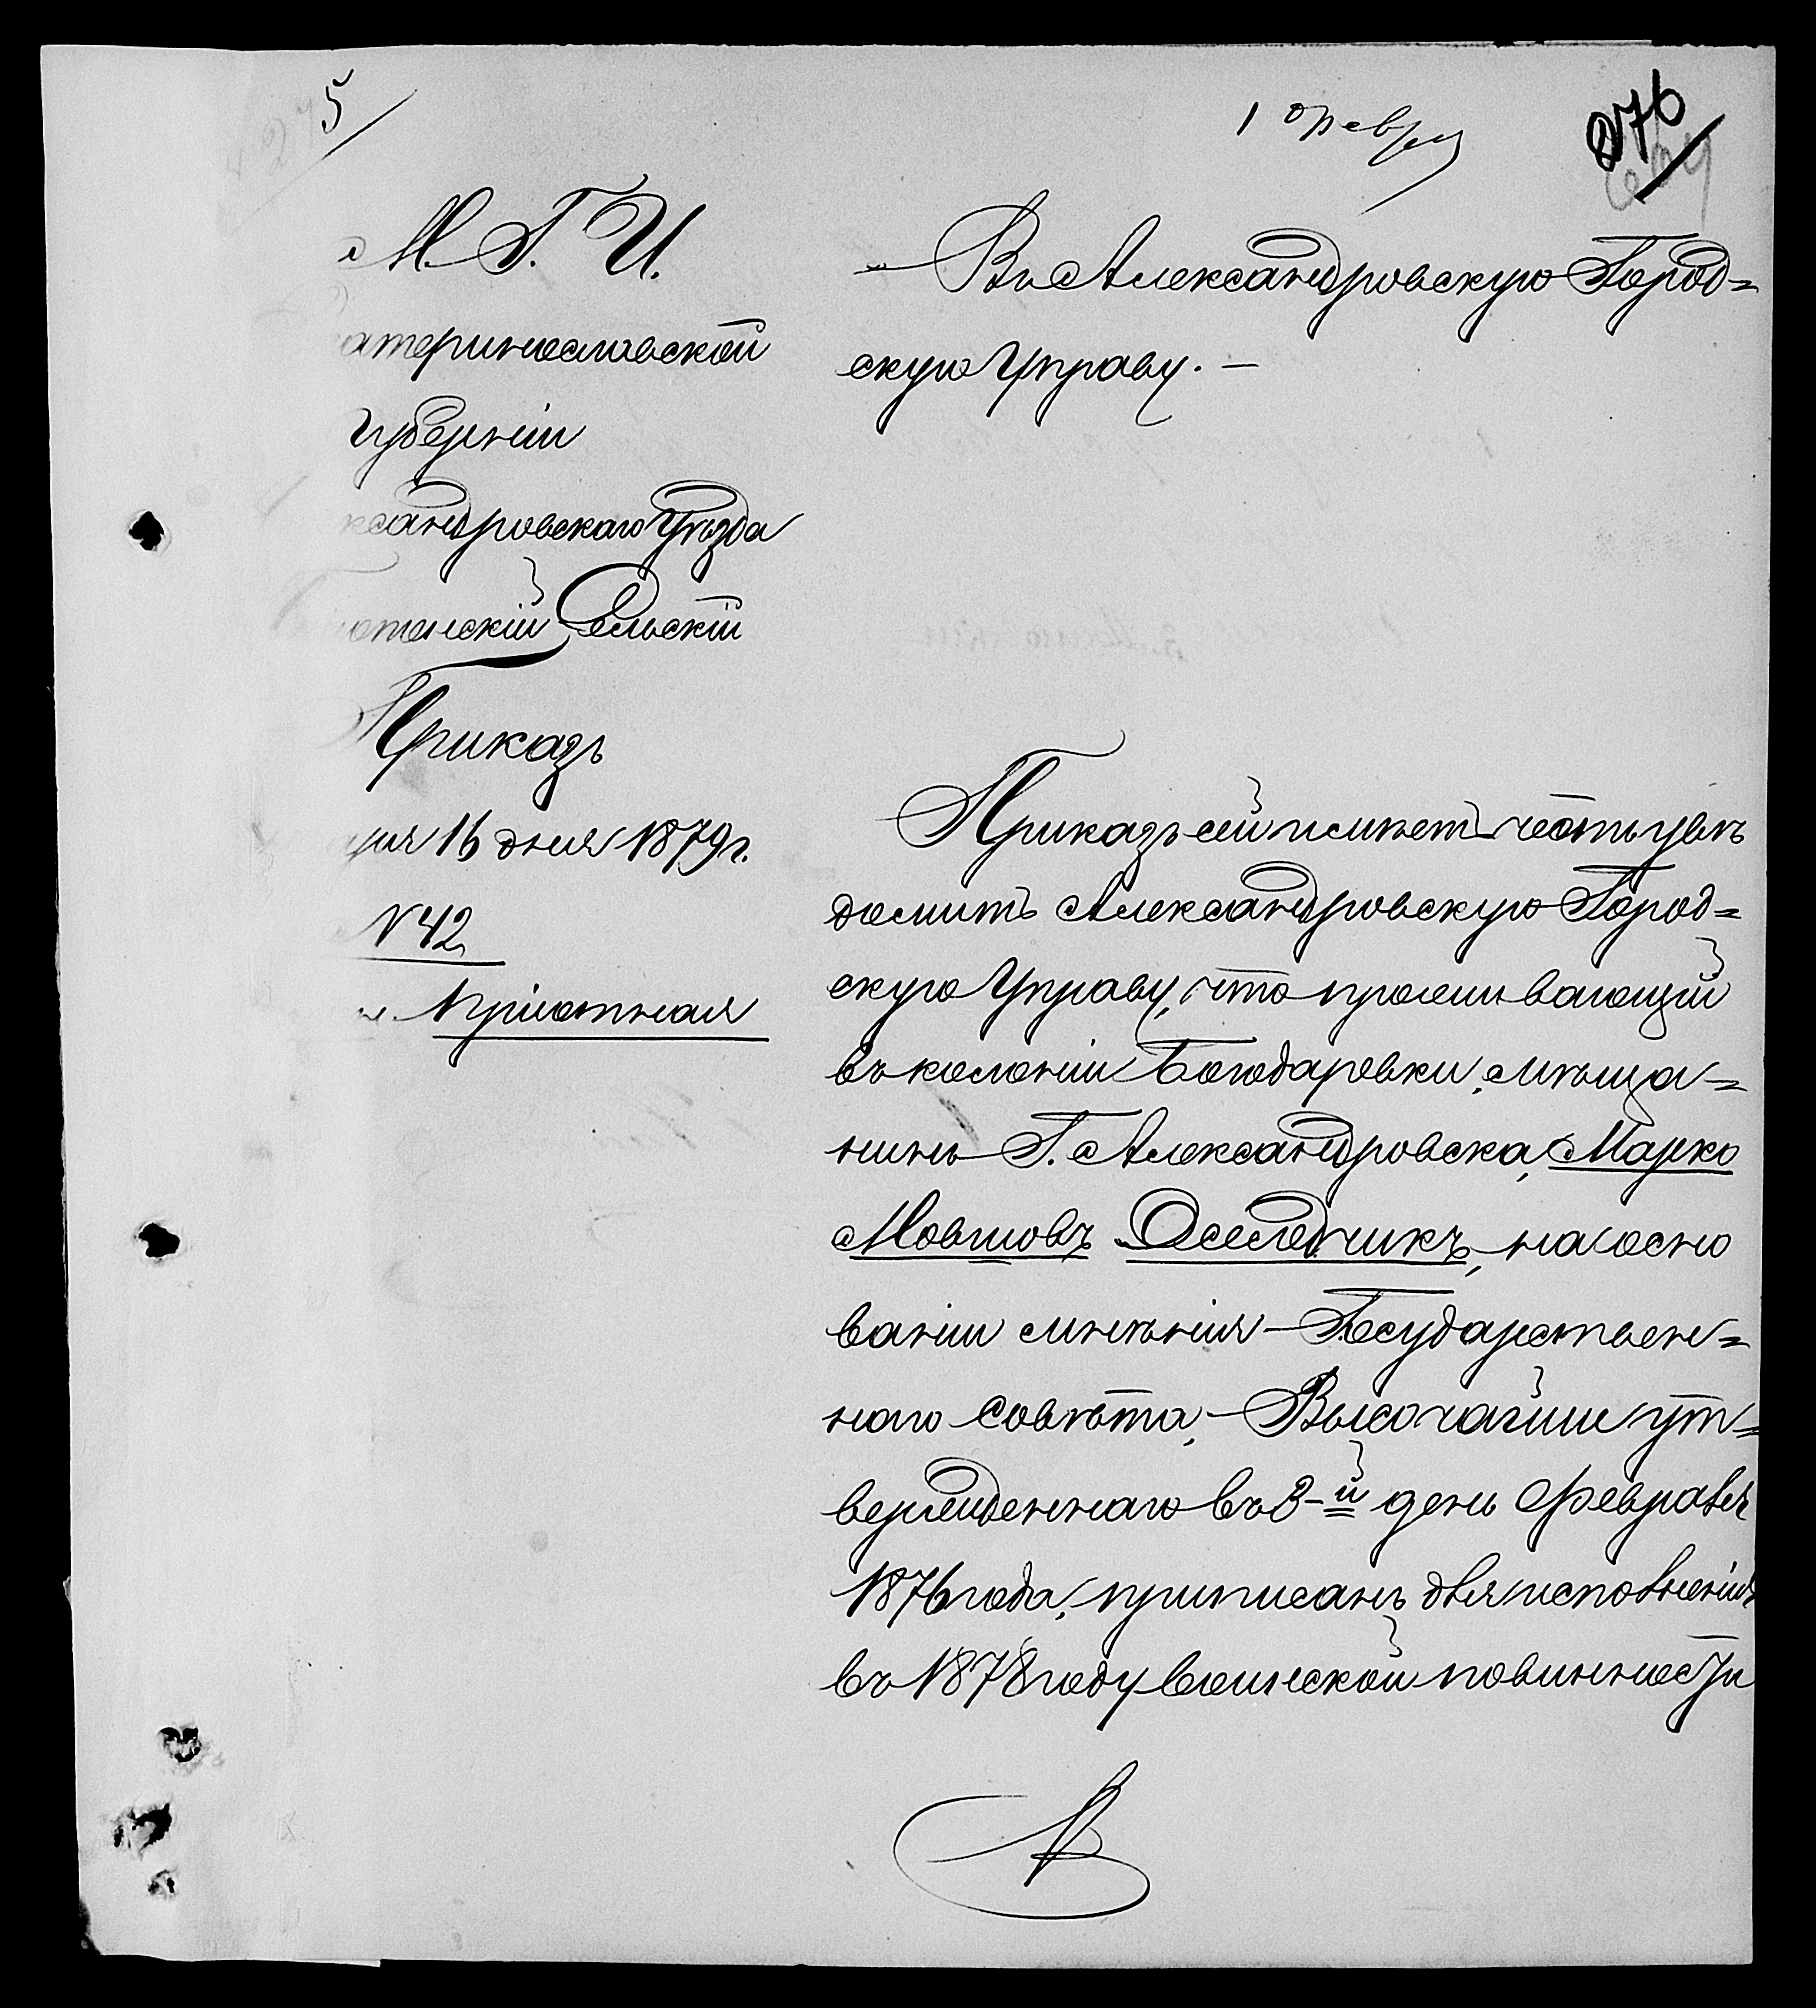 5
1 Февр
276
М. Г. И.
атеринославской
Губерніи
ксандровскаго Уѣзда
ютенскій Сельскій
Приказъ
аря 16 дня 1879 г.
№ 42
Пріютная
Въ Александровскую Город=
скую Управу. —
Приказъ сей имѣетъ честь увѣ
домить Александровскую Город=
скую Управу, что проживающій
въ колоніи Богодаровки, мѣща=
нинъ Г. Александровска, Марко
Мовшовъ Оселедчикъ, на осно
ваніи мнѣнія Государствен=
наго Совѣта, Высочайше ут=
вержденнаго въ 3-й день Февраля
1876 года, приписанъ для исполненія
въ 1878 году воинской повинности